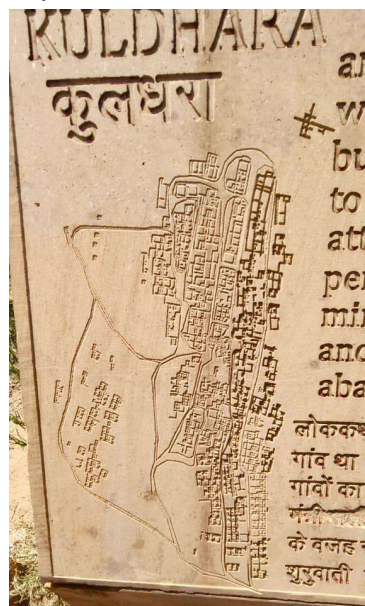 KULDHARA
कुलधरा
bu
to
att
per
min
and
aba
लोककथ
गांव था
गांवों का
के वजह
शुरुवाती